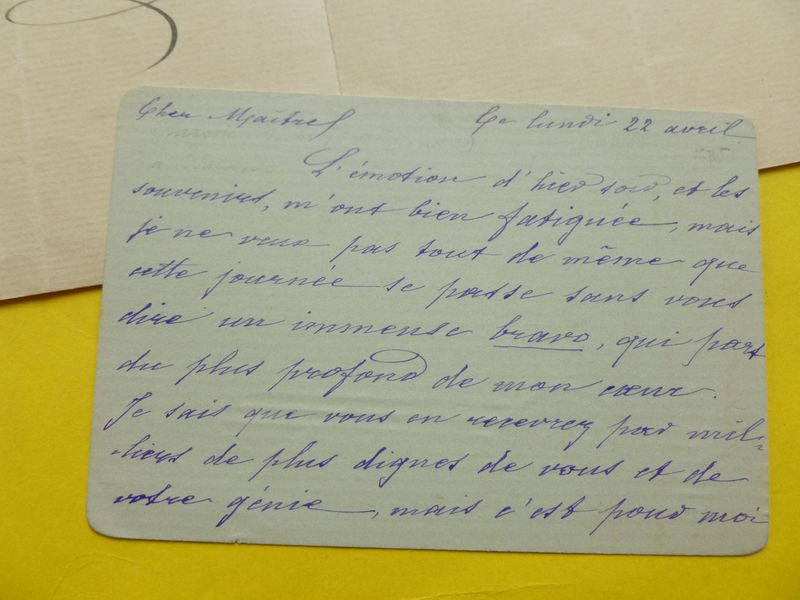 Cher Maître Ce lundi 22 avril
L'émotion d'hier soir, et les
souvenirs, m'ont bien fatiguée, mais
je ne veux pas tout de même que
cette journée se passe sans vous
dire un immense bravo, qui part
du plus profond de mon cœur.
Je sais que vous en recevrez par mil-
-liers de plus dignes de vous et de
votre génie, mais c'est pour moi